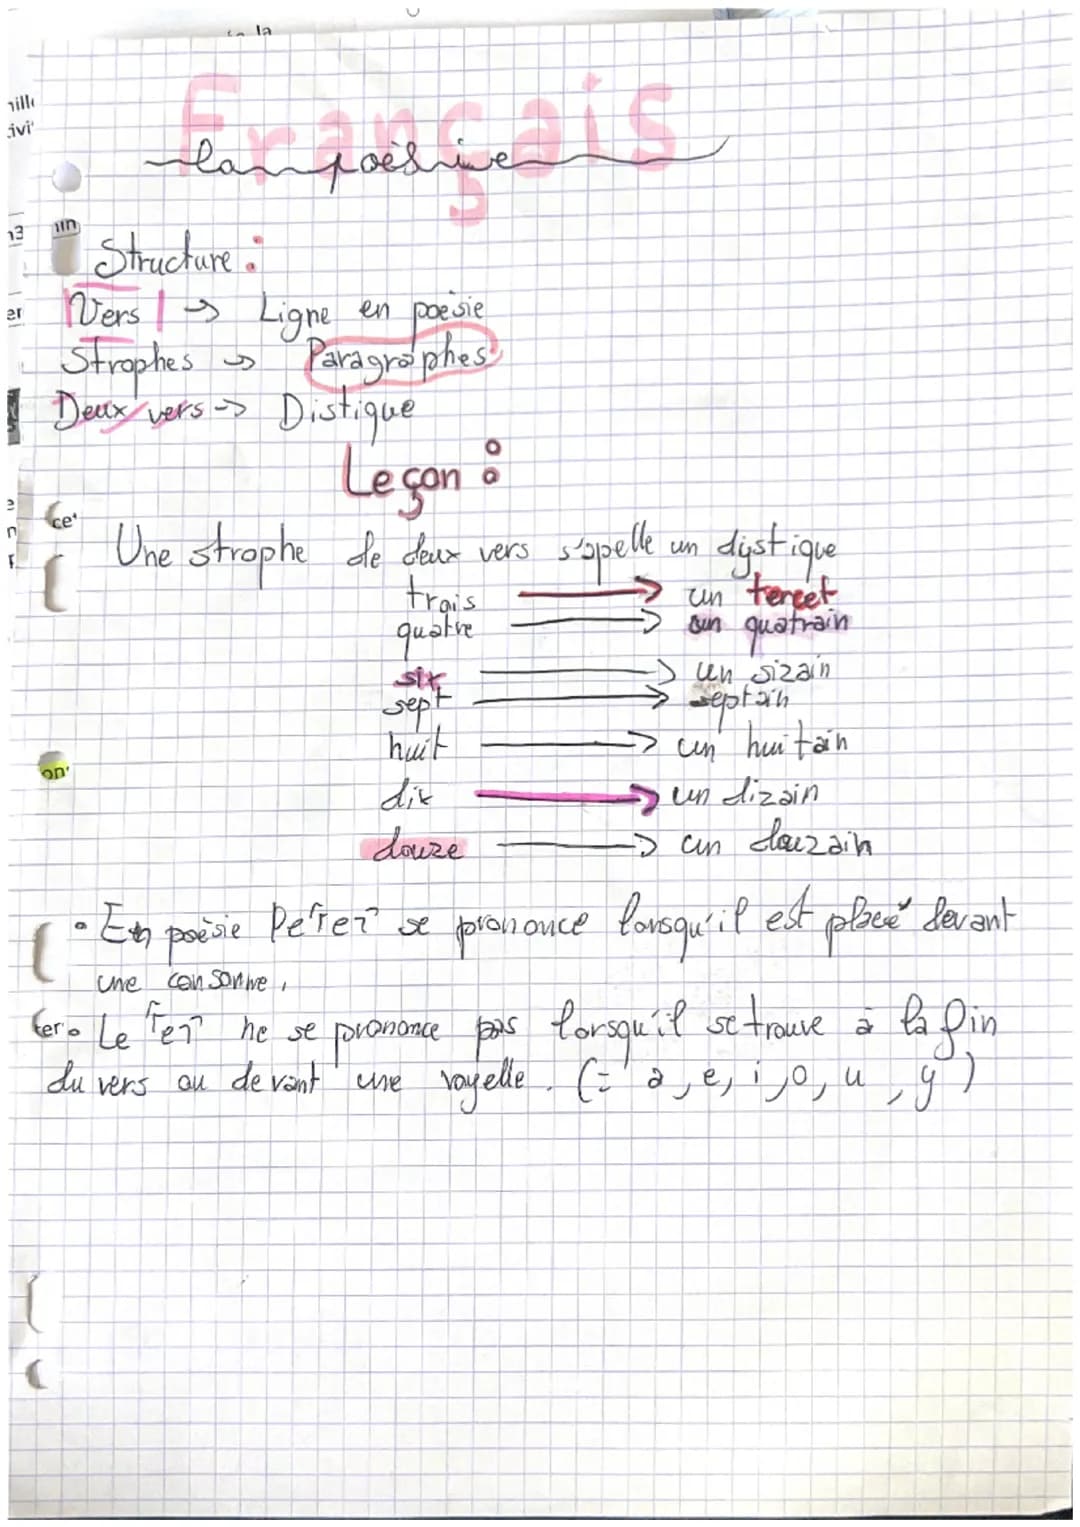 Français
la poèsie
Structure :
Vers → Ligne en poèsie
Strophes → Paragraphes
Deux vers → Distique
Leçon :
Une strophe de deux vers s'apelle un dystique
trois → un tercet
quatre → un quatrain
six → un sizain
sept → septain
huit → un huitain
dix → un dizain
douze → un douzain
• En poèsie le "e" se prononce lorsqu'il est placé devant
une consonne.
• Le "e" ne se prononce pas lorsqu'il se trouve à la fin
du vers ou devant une voyelle. (= a, e, i, o, u, y)